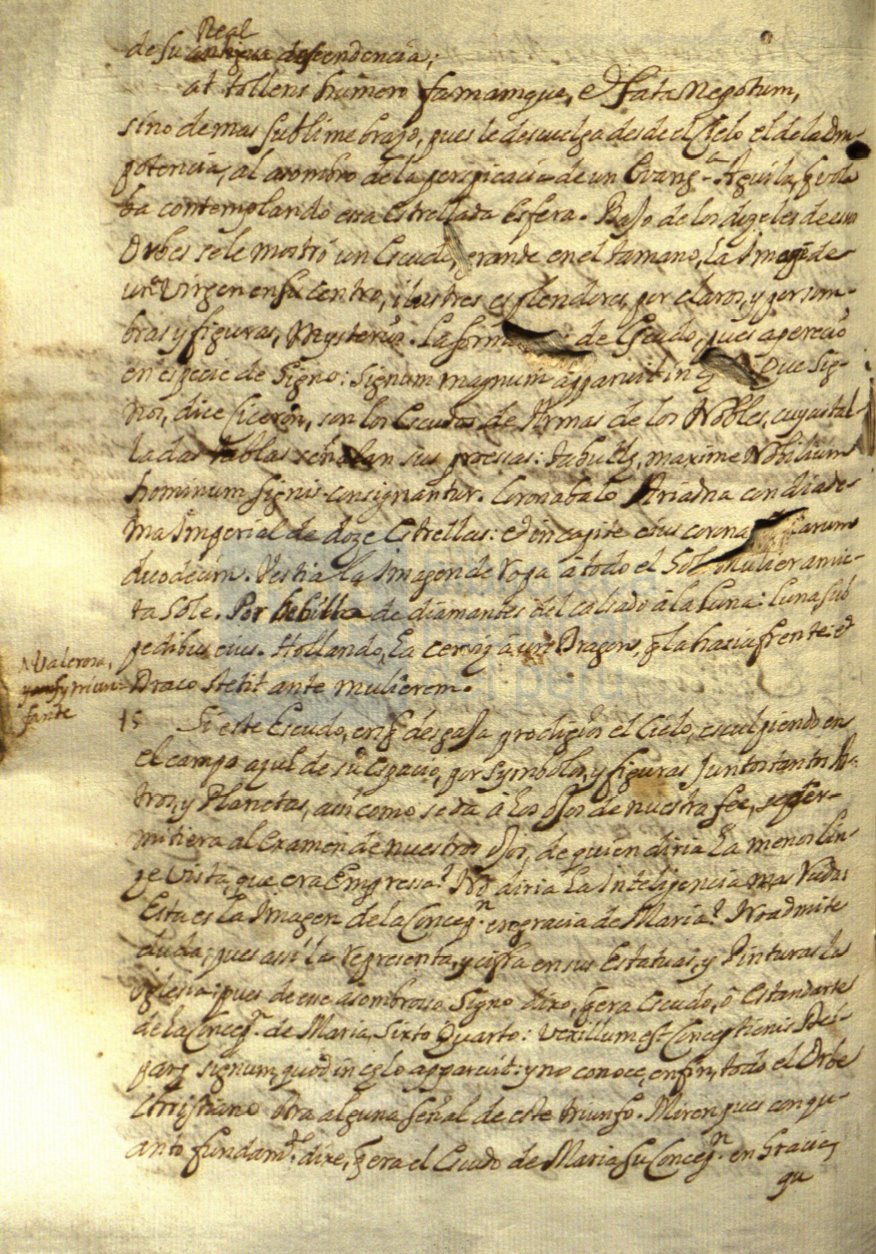 Real
de su antigua descendencia;
at tollens humero famamque, et fata Nepotum,
sino de mas sublime brazo, pues le descuelga desde el Cielo el de la Om-
potencia, al asombro de la perspicacia de un Evang.ca Aguila, q vola
ba contemplando esta Estrellada Esfera. Bajo de los dozeles de esos
Orbes se le mostró un Escudo, grande en el tamano, La Imagē de
una Virgen en su centro, ilustres esplendores, por claros, y por som-
bras y figuras, Mysterios. La forma de Escudo, pues aperecio
en especie de Signo: Signum magnum apparuit in Que Sig-
nos, dice Ciceron, son los Escudos de Armas de los Nobles, cuyas tal-
ladas tablas señalan sus proessas: tabulis, maxime Nobilium
hominum signis consignantur. Coronabalo Ariadna con diade-
ma Imperial de doze Estrellas: et in capite eius corona larum
duodecim. Vestia la Imagen de ropa à todo el Sol: mulier amic-
ta Sole. Por hebilla de diamantes del calsado à la Luna: Luna sub
pedibus eius. Hollando, La cerviz à un Dragon, q la hazia frente: et
Draco stetit ante mulierem.
Valerosa,
y trium-
fante
15 Si este Escudo, en q despaja prodigios el Cielo, esculpiendo en
el campo azul de su espacio, por symbolos, y figuras Juntos tantos As-
tros, y Planetas, assi como se da à los Ojos de nuestra fee, se per-
mitiera al Examen de nuestros Ojos, de quien diria La menos lin-
ze Vista, que era Empressa? No diria La Inteligencia mas Ruda:
Esta es La Imagen de la Concep.n en gracia de Maria? No admite
duda; pues assi la representa, y cifra en sus Estatuas, y Pinturas La
iglesia: pues de ese asombroso Signo dixo, q era Escudo, ò Estandarte
de la Concep.n de Maria, Sixto Quarto: Vexillum est Conceptionis Dei-
parę signum, quod in cęlo apparuit: y no conoce, en fin, todo el Orbe
Christiano otra alguna señal de este triunfo. Miren pues con qu-
anto fundam.to dixe, q era el Escudo de Maria su Concep.n en Gracia,
qu